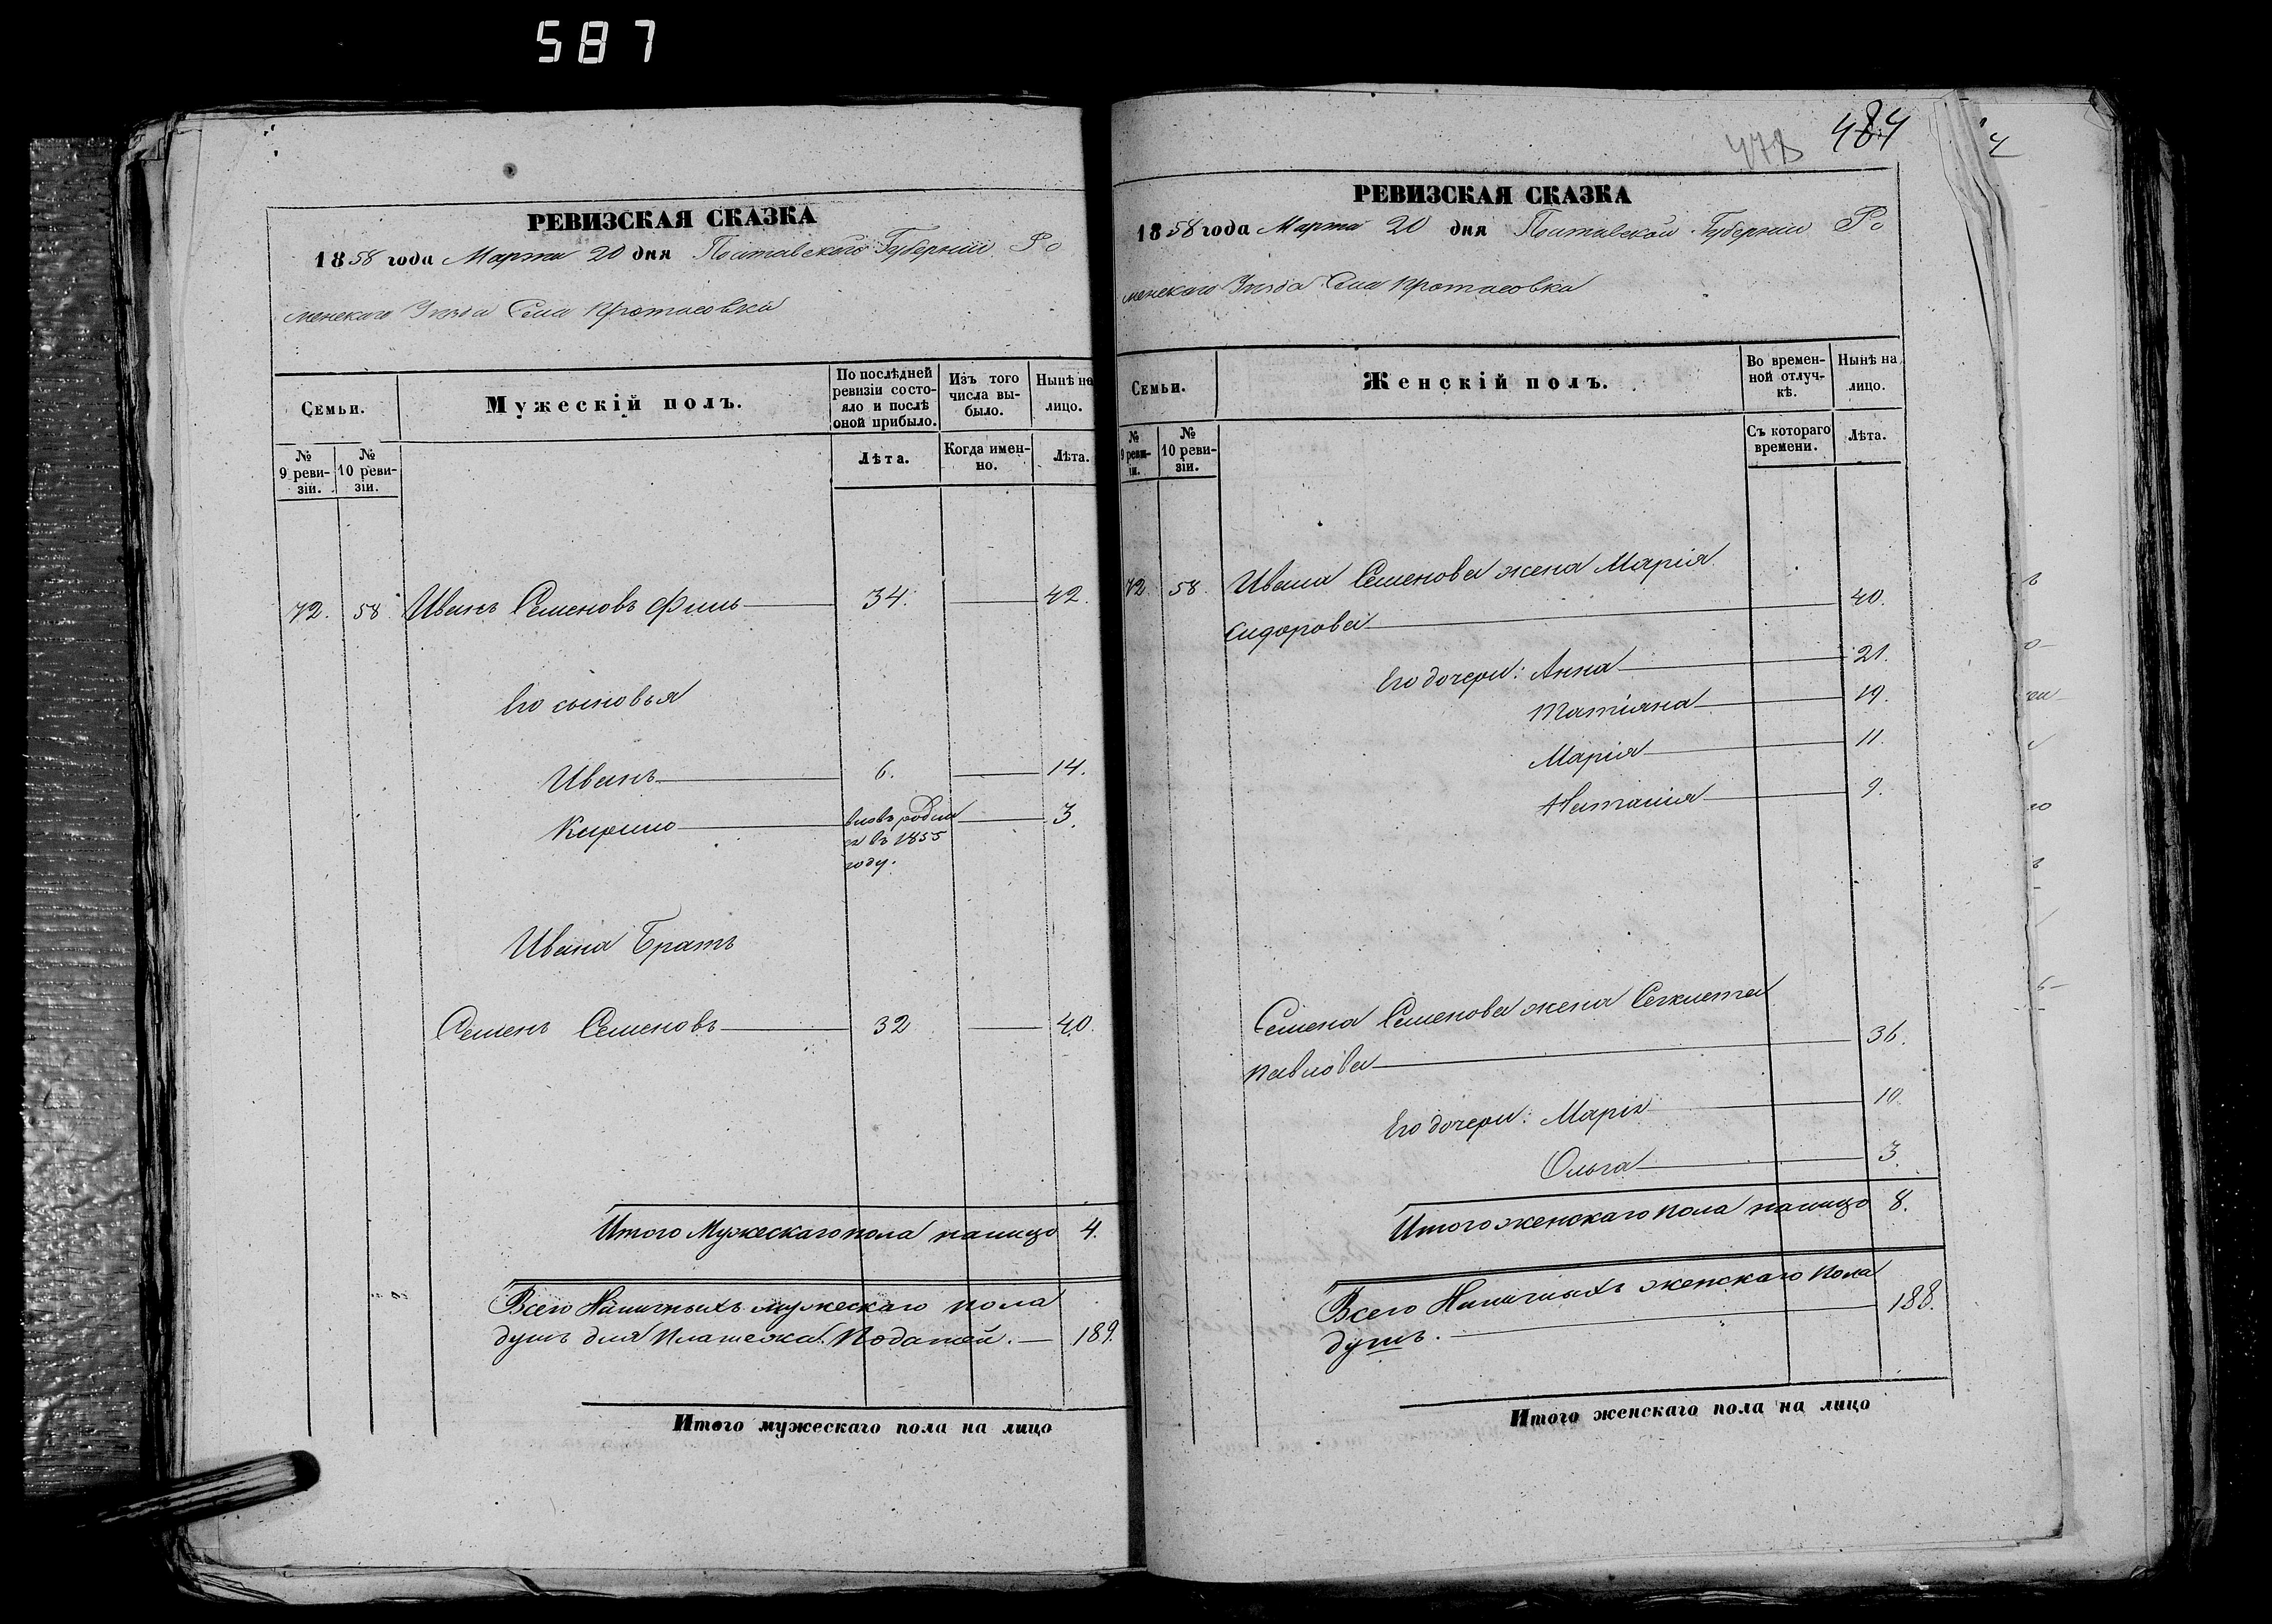 587
РЕВИЗСКАЯ СКАЗКА
1858 года Марта 20 дня Полтавской Губернии Ро
менскаго Уѣзда Села Протасовки
Семьи.
Мужескій полъ.
По послѣдней ревизіи состояло и послѣ оной прибыло.
Изъ того числа выбыло.
Нынѣ на лицо.
№ 9 ревизіи.
№ 10 ревизіи.
Лѣта.
Когда именно.
Лѣта.
72. 58 Иванъ Семеновъ 34. 42.
Его сыновья
Иванъ 6. 14.
Кирило вновь родил 3.
ся въ 1855
году.
Ивана Братъ
Семенъ Семеновъ 32 40.
Итого Мужескаго пола налицо 4.
Всего Наличныхъ мужескаго пола
душъ для Платежа Податей. 189.
Итого мужескаго пола на лицо
478 484
РЕВИЗСКАЯ СКАЗКА
1858 года Марта 20 дня Полтавской Губернии Ро
менскаго Уѣзда Села Протасовки
Семьи.
Женскій полъ.
Во временной отлучкѣ.
Нынѣ на лицо.
№ 9 ревизіи.
№ 10 ревизіи.
Съ котораго времени.
Лѣта.
72. 58. Ивана Семенова жена Марія
Сидорова 40.
Его дочери: Анна 21.
Татіяна 19.
Марія 11.
Наталія 9.
Семена Семенова жена
Павлова 36.
Его дочери: Марія 10.
Ольга 3.
Итого женскаго пола налицо 8.
Всего Наличныхъ женскаго пола
душъ. 188.
Итого женскаго пола на лицо